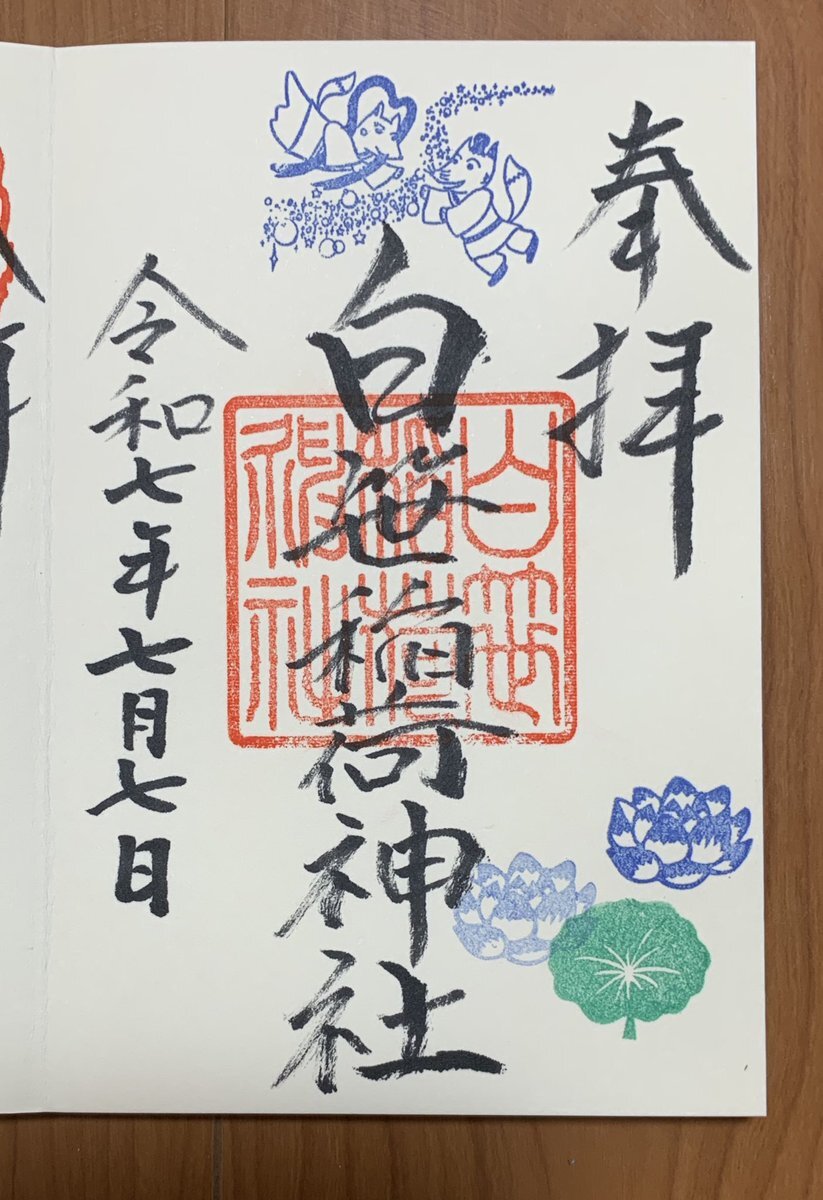 奉拝
白笹稲荷神社
白笹稲荷神社
令和七年七月七日